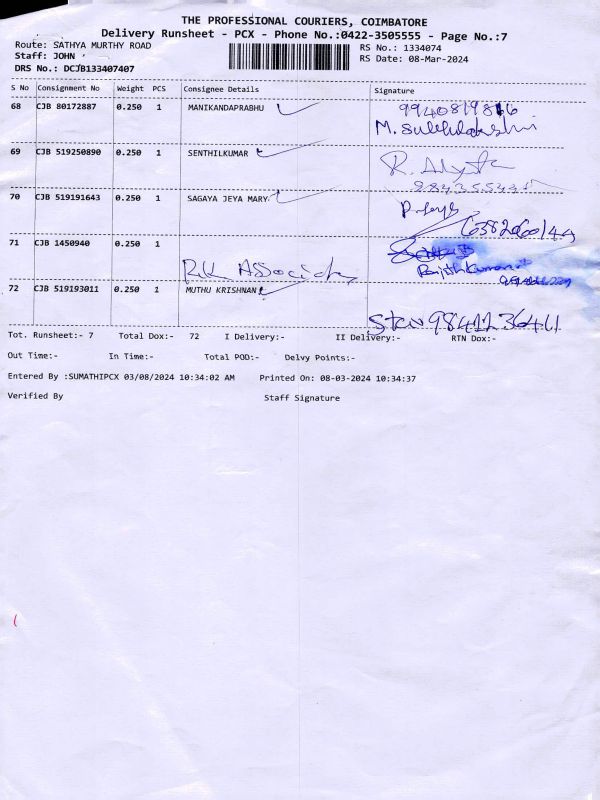 THE PROFESSIONAL COURIERS, COIMBATORE
Delivery Runsheet - PCX - Phone No.:0422-3505555 - Page No.:7
Route: SATHYA MURTHY ROAD
RS No.: 1334074
Staff: JOHN
RS Date: 08-Mar-2024
DRS No.: DCJB133407407
S No Consignment No Weight PCS Consignee Details Signature
68 CJB 80172887 0.250 1 MANIKANDAPRABHU
69 CJB 519250890 0.250 1 SENTHILKUMAR
70 CJB 519191643 0.250 1 SAGAYA JEYA MARY
6382060144
71 CJB 1450940 0.250 1
RK Associates
Ranjithkumar
72 CJB 519193011 0.250 1 MUTHU KRISHNAN
9841236411
Tot. Runsheet:- 7 Total Dox:- 72 I Delivery:- II Delivery:- RTN Dox:-
Out Time:- In Time:- Total POD:- Delvy Points:-
Entered By :SUMATHIPCX 03/08/2024 10:34:02 AM Printed On: 08-03-2024 10:34:37
Verified By Staff Signature